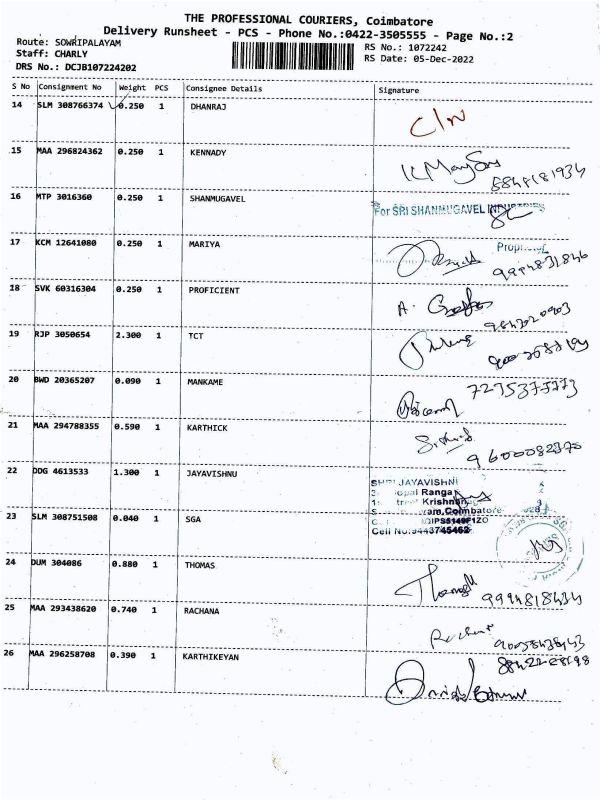 THE PROFESSIONAL COURIERS, Coimbatore
Delivery Runsheet - PCS - Phone No.:0422-3505555 - Page No.:2
Route: SOWRIPALAYAM
Staff: CHARLY
DRS No.: DCJB107224202
RS No.: 1072242
RS Date: 05-Dec-2022
S No Consignment No Weight PCS Consignee Details Signature
14 SLM 308766374 0.250 1 DHANRAJ
15 MAA 296824362 0.250 1 KENNADY
16 MTP 3016360 0.250 1 SHANMUGAVEL
For SRI SHANMUGAVEL INDUSTRIES
17 KCM 12641080 0.250 1 MARIYA
9994831846
18 SVK 60316304 0.250 1 PROFICIENT
19 RJP 3050654 2.300 1 TCT
20 BWD 20365207 0.090 1 MANKAME
21 MAA 294788355 0.590 1 KARTHICK
9600082370
22 DDG 4613533 1.300 1 JAYAVISHNU
SHRI JAYAVISHNU
Cell No:9443745462
23 SLM 308751508 0.040 1 SGA
24 DUM 304086 0.880 1 THOMAS
9994818434
25 MAA 293438620 0.740 1 RACHANA
26 MAA 296258708 0.390 1 KARTHIKEYAN